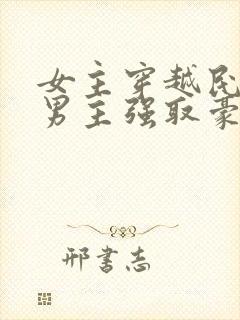 女主穿越民
男主强取豪
邢书志